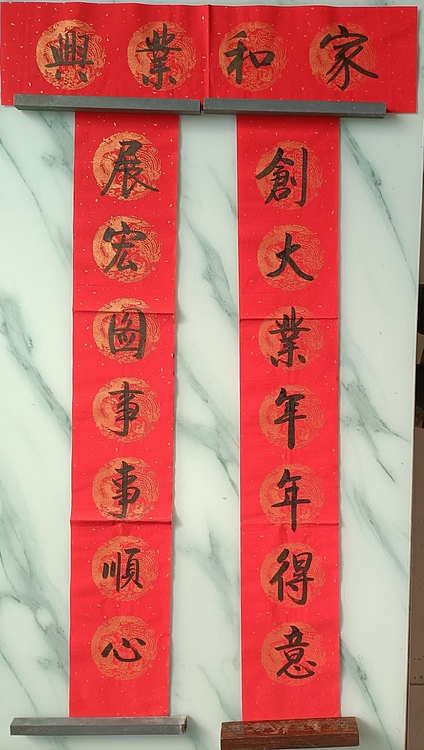 家和業興
創大業年年得意
展宏圖事事順心